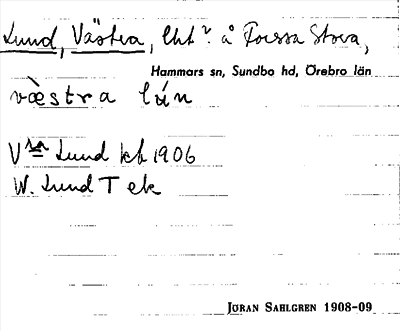 Lund, Västra, lht? å Forssa Stora,
Hammars sn, Sundbo hd, Örebro län
væstra lún
Vra Lund kb 1906
W. Lund T ek
JÖRAN SAHLGREN 1908-09